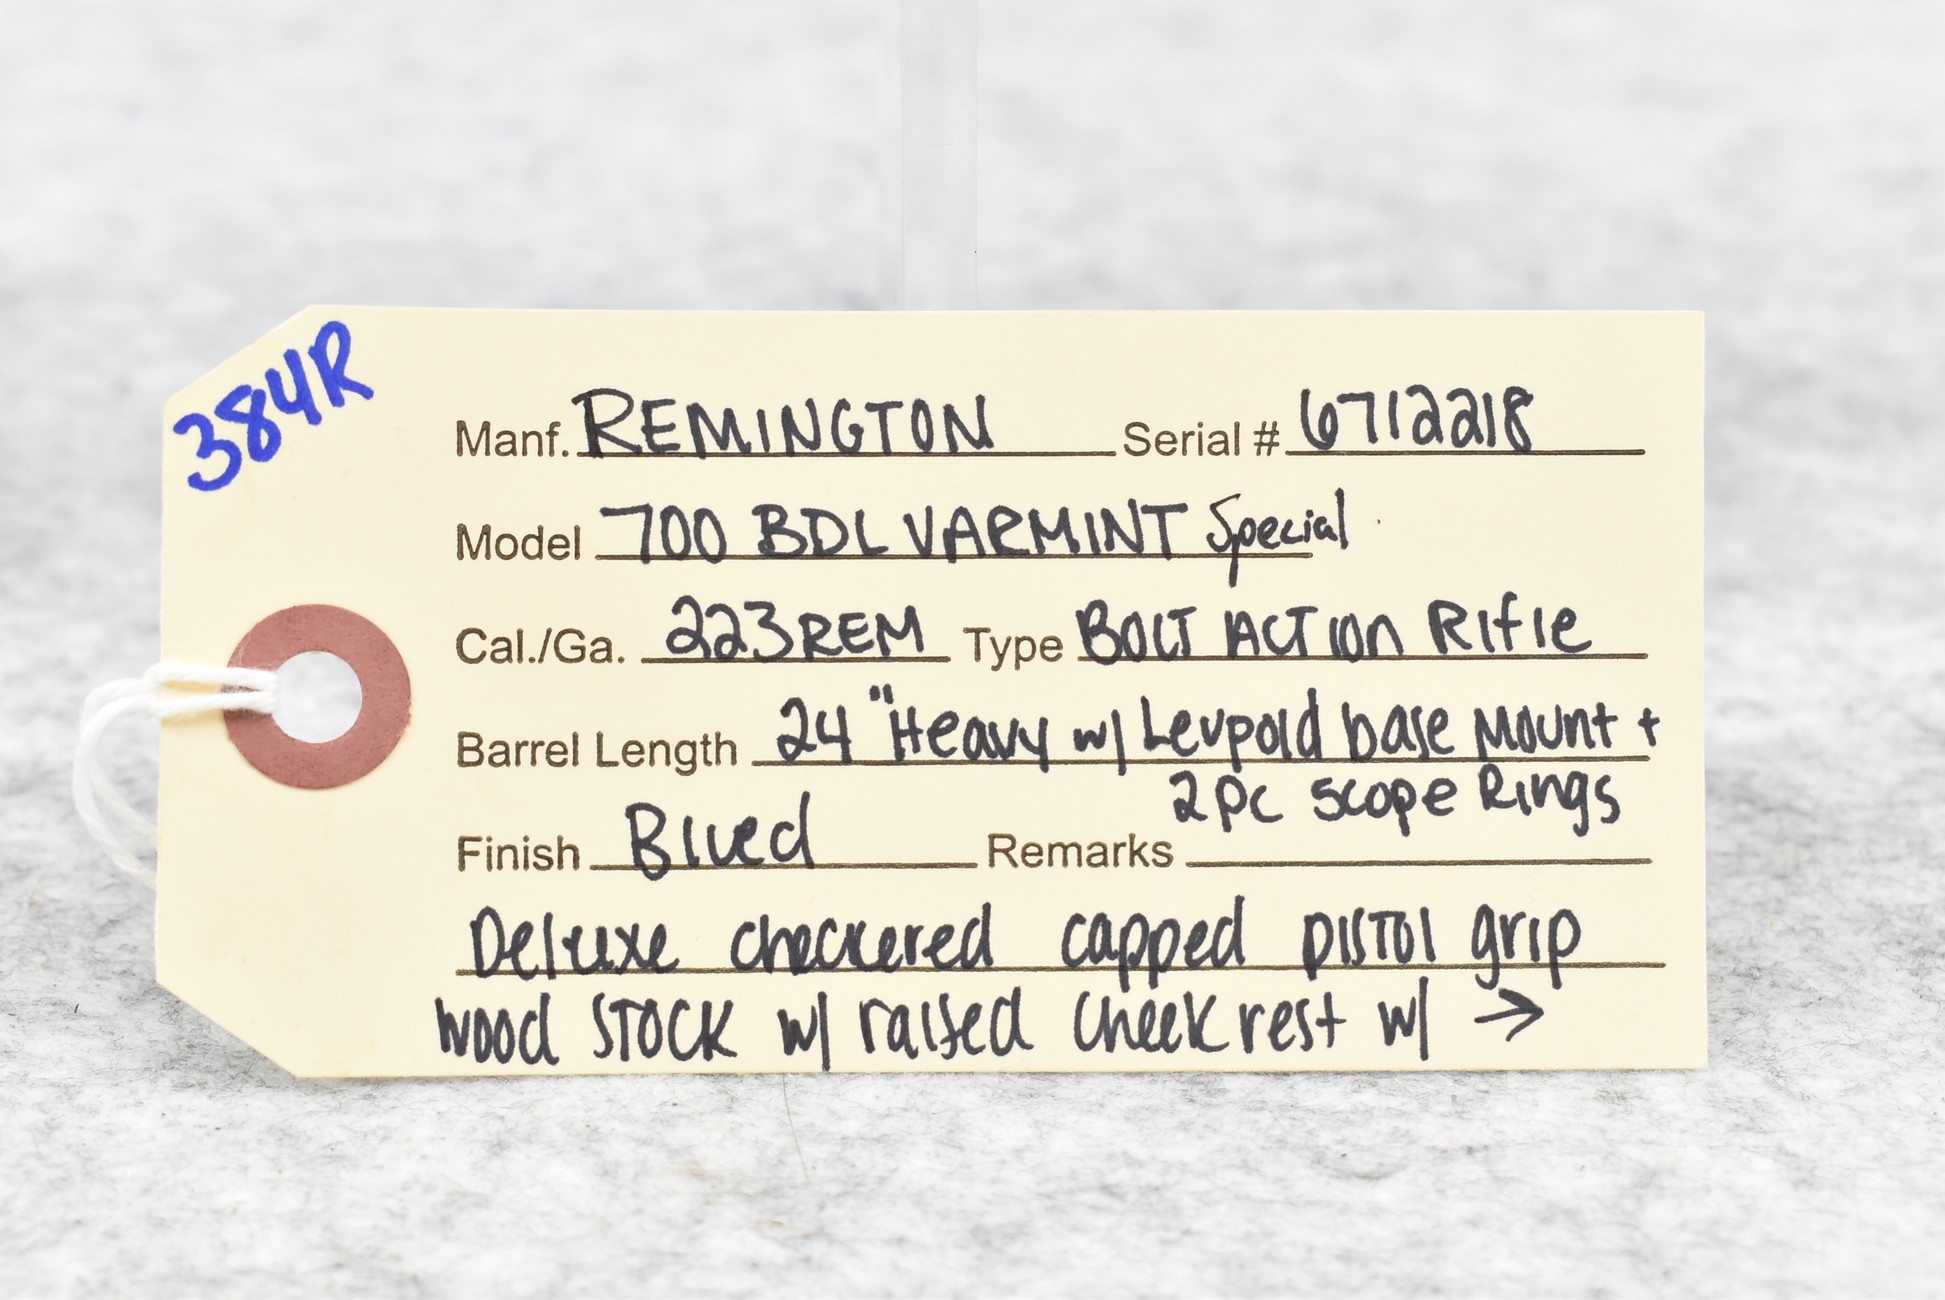 384R
Manf. REMINGTON Serial # 6712218
Model 700 BDL VARMINT Special
Cal./Ga. 223 REM Type BOLT ACTION RIFLE
Barrel Length 24" Heavy w/ Leupold base mount +
2pc scope Rings
Finish Blued Remarks
Deluxe checkered capped pistol grip
wood stock w/ raised cheek rest w/ →